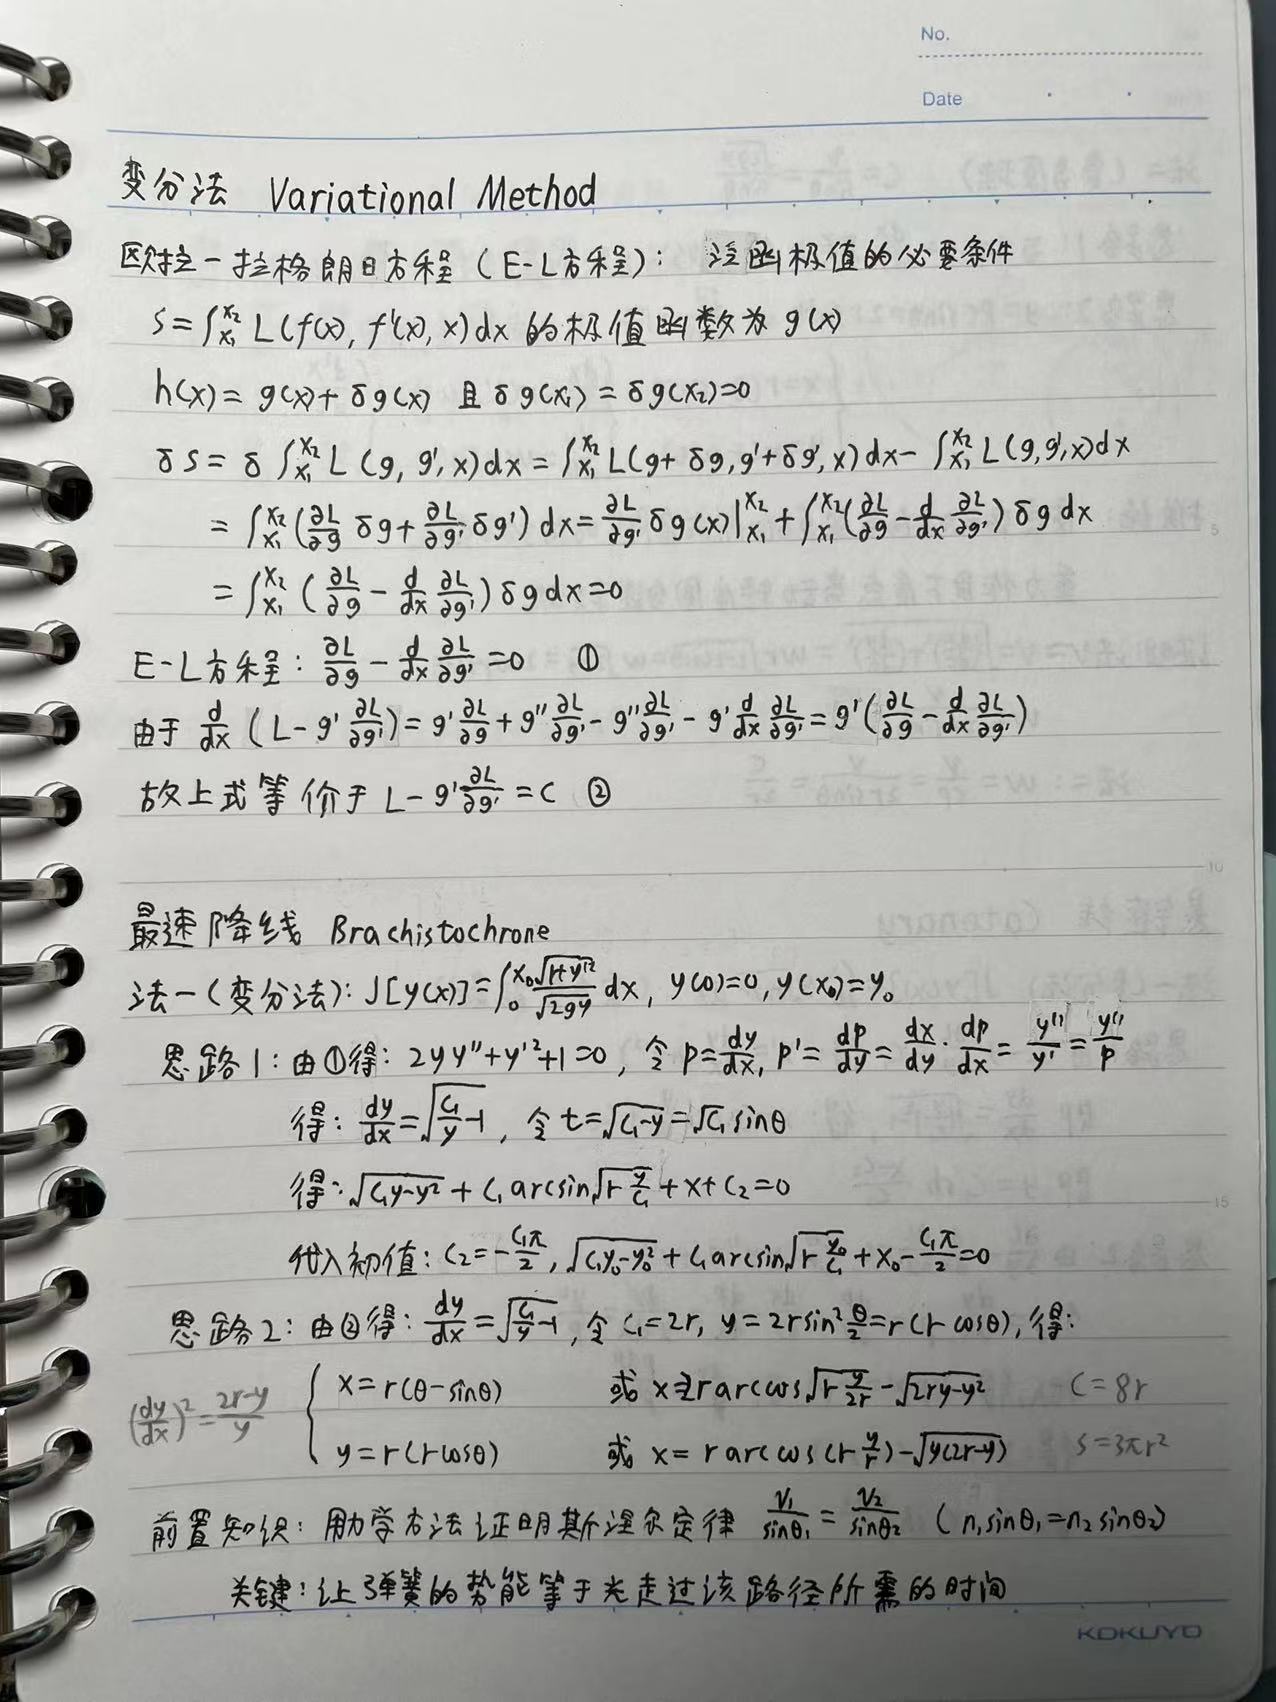 No.
Date
变分法 Variational Method
欧拉-拉格朗日方程(E-L方程): 泛函极值的必要条件
S=∫_{x₁}^{x₂} L(f(x), f'(x), x)dx 的极值函数为 g(x)
h(x)= g(x)+ δg(x) 且 δg(x₁)= δg(x₂)=0
δS= δ∫_{x₁}^{x₂} L(g, g', x)dx = ∫_{x₁}^{x₂} L(g+δg, g'+δg', x)dx - ∫_{x₁}^{x₂} L(g,g',x)dx
= ∫_{x₁}^{x₂} (∂L/∂g δg + ∂L/∂g' δg') dx = ∂L/∂g' δg(x)|_{x₁}^{x₂} + ∫_{x₁}^{x₂} (∂L/∂g - d/dx ∂L/∂g') δg dx
= ∫_{x₁}^{x₂} (∂L/∂g - d/dx ∂L/∂g') δg dx=0
E-L方程: ∂L/∂g - d/dx ∂L/∂g' =0 ①
由于 d/dx (L- g' ∂L/∂g') = g' ∂L/∂g + g'' ∂L/∂g' - g'' ∂L/∂g' - g' d/dx ∂L/∂g' = g'(∂L/∂g - d/dx ∂L/∂g')
故上式等价于 L- g' ∂L/∂g' = C ②
最速降线 Brachistochrone
法一(变分法): J[y(x)]=∫_0^{x₀} √(1+y'²)/√(2gy) dx, y(0)=0, y(x₀)=y₀
思路1: 由①得: 2yy''+y'²+1=0, 令 p=dy/dx, p'=dp/dy=dx/dy·dp/dx=y''/y'=y''/p
得: dy/dx=√(C₁/y-1), 令 t=√(C₁-y)=√C₁ sinθ
得: √(C₁y-y²)+C₁arcsin√(1-y/C₁)+x+C₂=0
代入初值: C₂=-C₁π/2, √(C₁y₀-y₀²)+C₁arcsin√(1-y₀/C₁)+x₀-C₁π/2=0
思路2: 由②得: dy/dx=√(C₁/y-1), 令 C₁=2r, y=2rsin²θ/2=r(1-cosθ), 得:
(dy/dx)²=(2r-y)/y { x=r(θ-sinθ) 或 x=2r arccos√(1-y/2r)-√(2ry-y²) C=8r
y=r(1-cosθ) 或 x=r arccos(1-y/r)-√(y(2r-y)) S=3πr²
前置知识: 用力学方法证明斯涅尔定律 v₁/sinθ₁=v₂/sinθ₂ (n₁sinθ₁=n₂sinθ₂)
关键: 让弹簧的势能等于光走过该路径所需的时间
KOKUYO